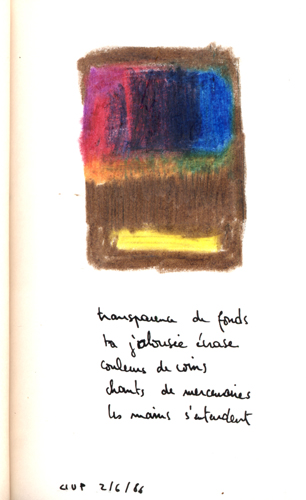 transparence de fonds
ta jalousie écrase
couleurs de coins
chants de mercenaires
les mains s'attardent
CIUP 2/6/66